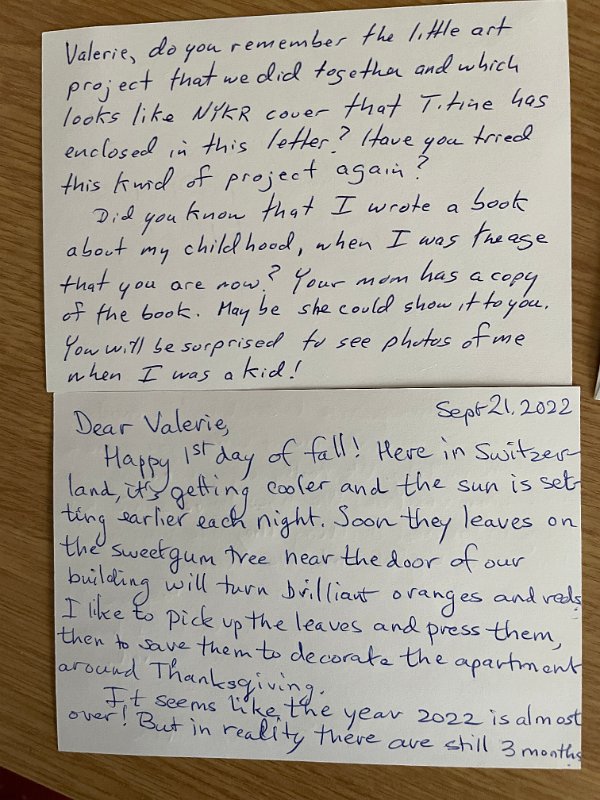 Valerie, do you remember the little art
project that we did together and which
looks like NYKR cover that Titine has
enclosed in this letter? Have you tried
this kind of project again?
Did you know that I wrote a book
about my childhood, when I was the age
that you are now? Your mom has a copy
of the book. May be she could show it to you.
You will be surprised to see photos of me
when I was a kid!
Sept 21, 2022
Dear Valerie,
Happy 1st day of fall! Here in Switzer-
land, it's getting cooler and the sun is set-
ting earlier each night. Soon they leaves on
the sweetgum tree near the door of our
building will turn brilliant oranges and reds.
I like to pick up the leaves and press them,
then to save them to decorate the apartment
around Thanksgiving.
It seems like the year 2022 is almost
over! But in reality there are still 3 months